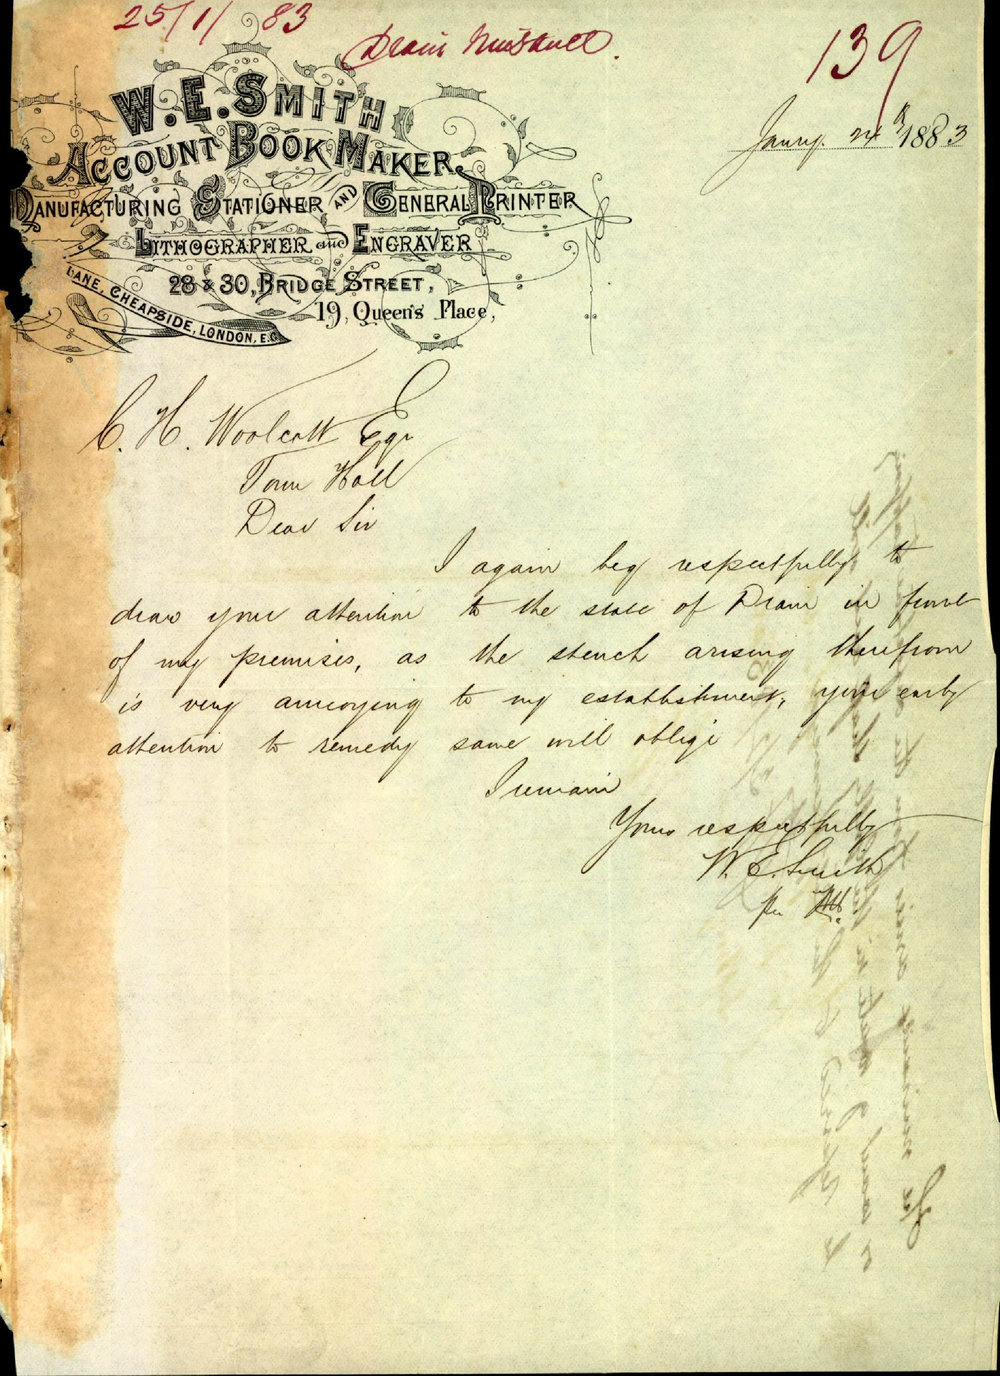 25/1/83
Drain Nuisance.
139
W.E. SMITH
ACCOUNT BOOK MAKER,
MANUFACTURING STATIONER AND GENERAL PRINTER
LITHOGRAPHER and ENGRAVER
28 & 30, BRIDGE STREET,
19, Queen's Place,
LANE, CHEAPSIDE, LONDON, E.C.
Janry. 24th 1883
C. H. Woolcott Esqr
Town Hall
Dear Sir
I again beg respectfully to
draw your attention to the state of Drain in front
of my premises, as the stench arising therefrom
is very annoying to my establishment, your early
attention to remedy same will oblige
I remain
Yours respectfully
W. E. Smith
per